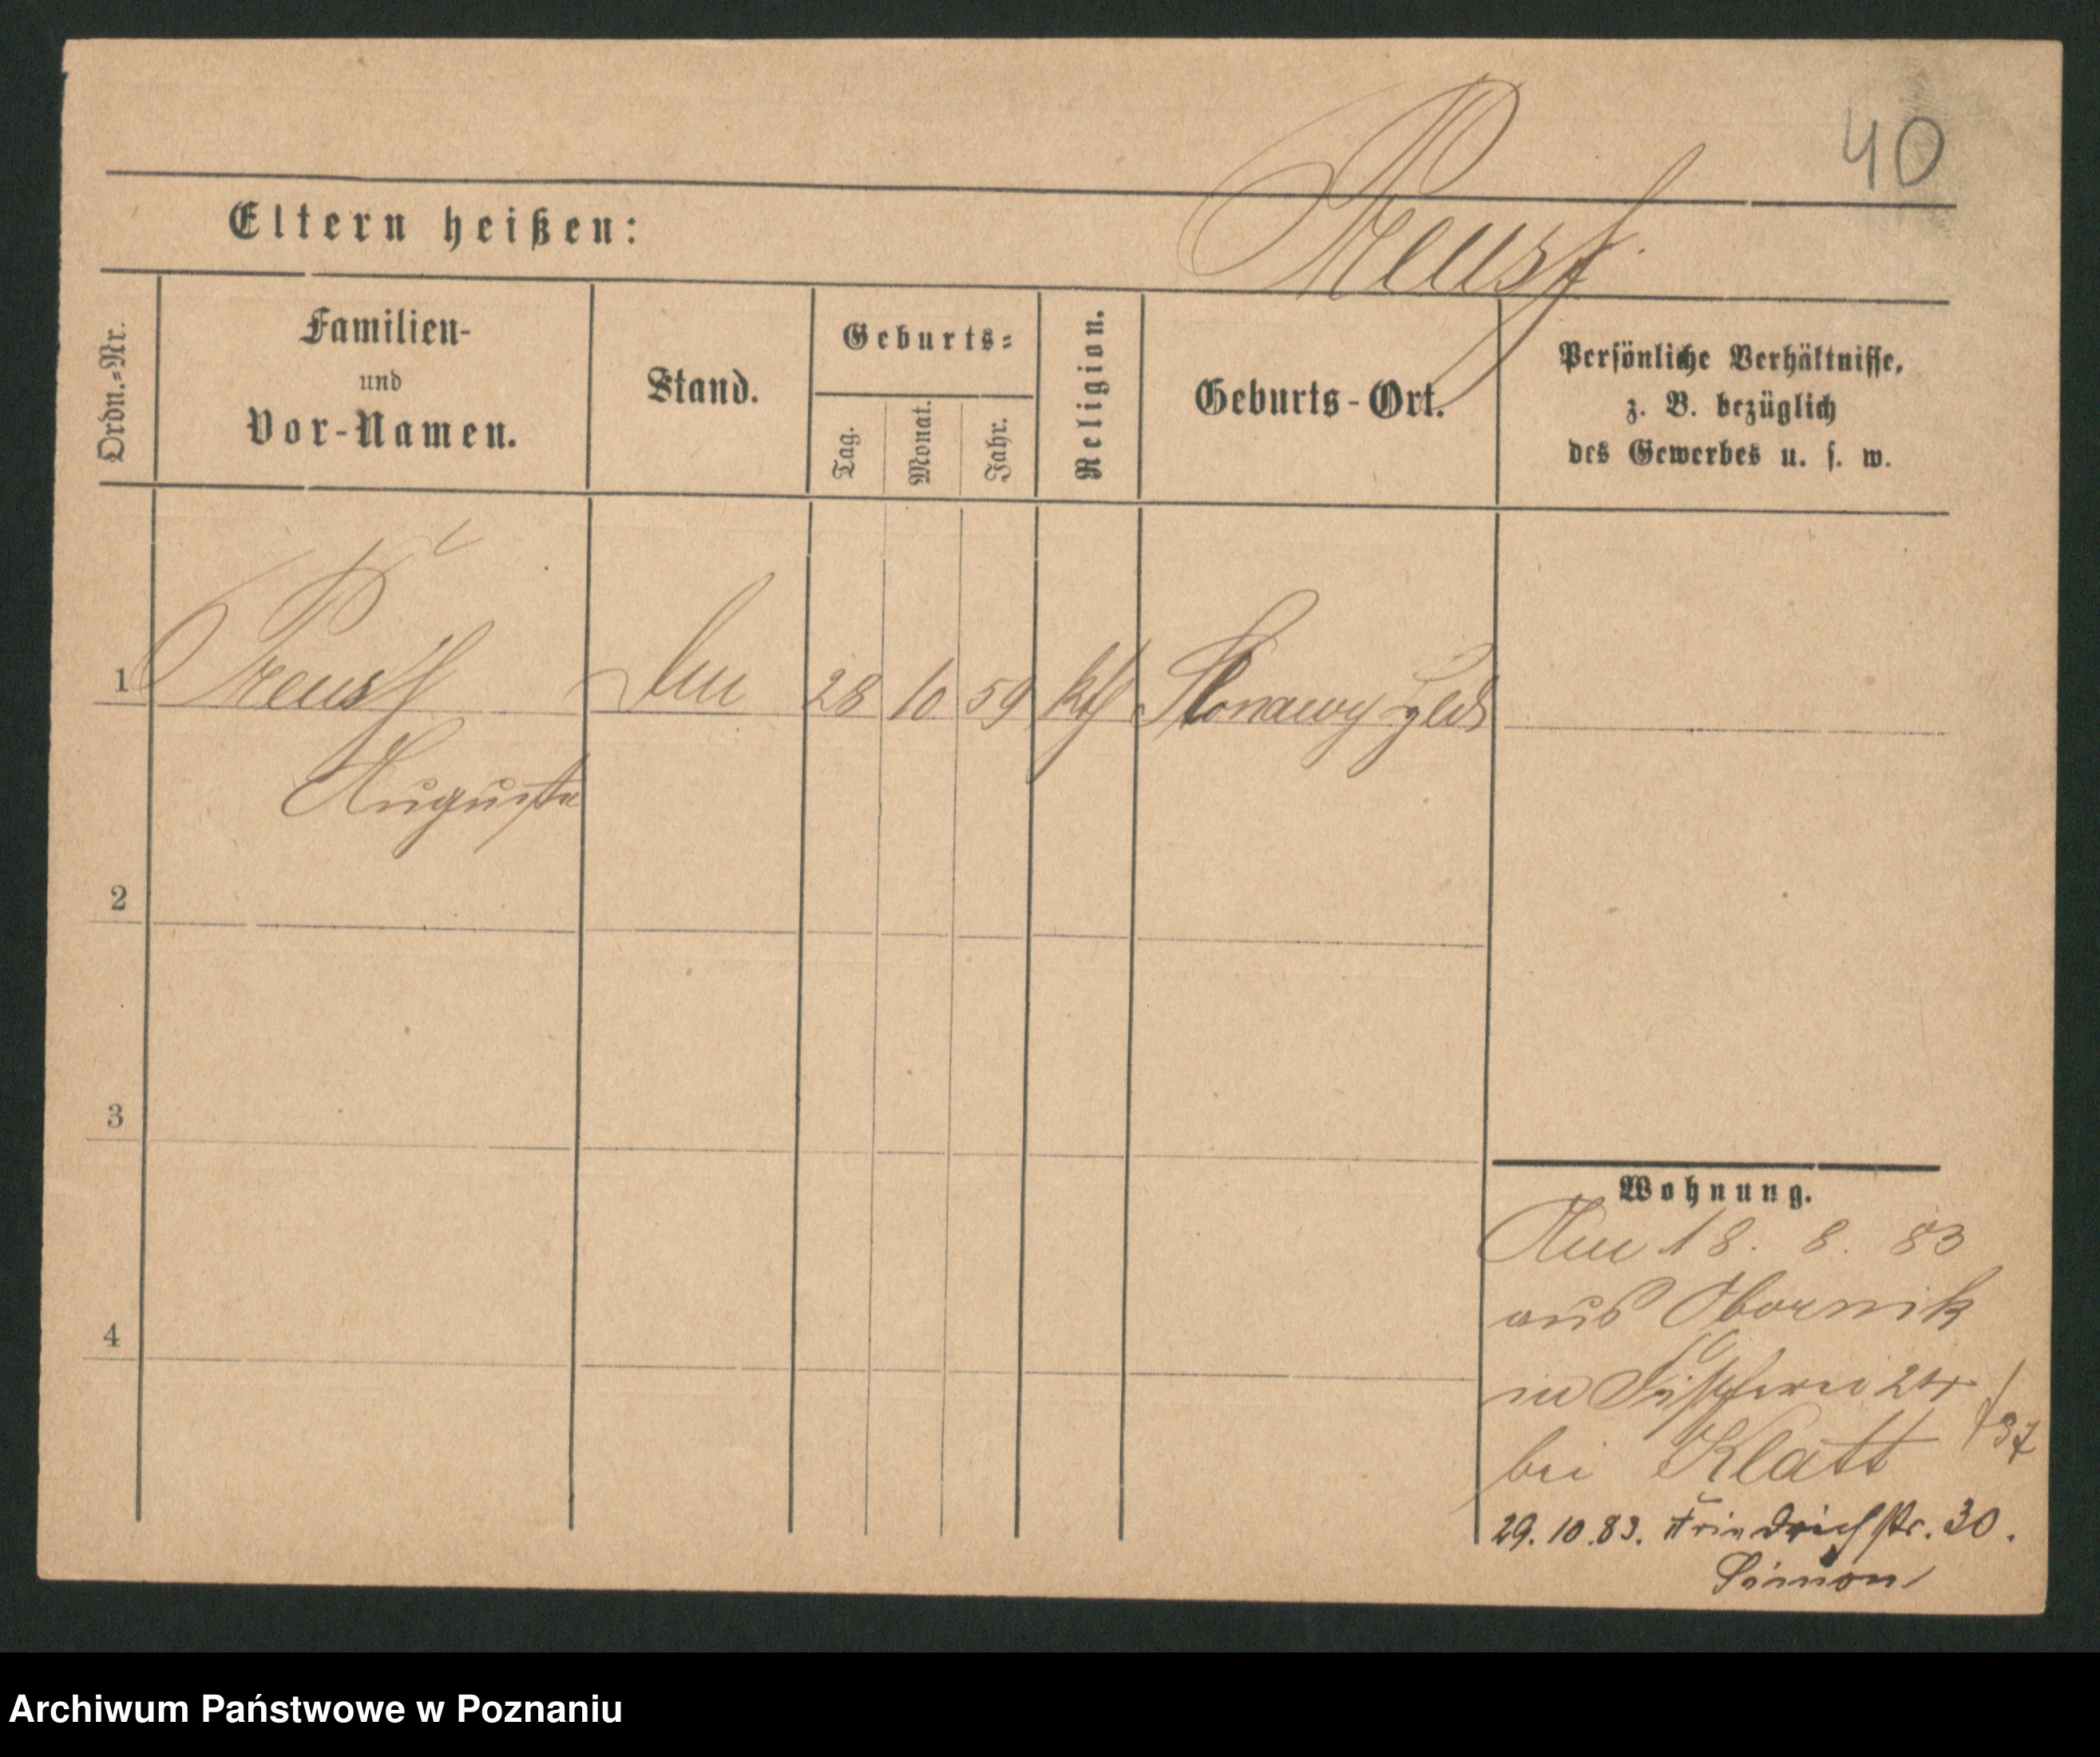 40
Eltern heißen:
Preuss
Ordn.-Nr.
Familien-
und
Vor-Namen.
Stand.
Geburts-
Tag.
Monat.
Jahr.
Religion.
Geburts-Ort.
Persönliche Verhältnisse,
z. B. bezüglich
des Gewerbes u. s. w.
1 Preuss 28 10 59 kth Slonawy
Auguste
2
3
4
Wohnung.
18. 8. 83
aus Obornik
24
bei Klatt
29.10.83. Friedrichstr. 30.
Simon
Archiwum Państwowe w Poznaniu